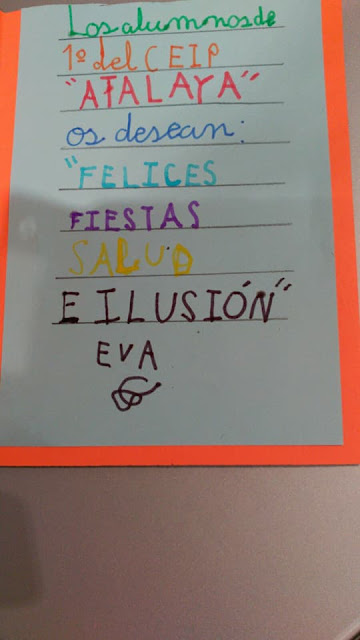 Los alumnos de
1º del CEIP
"ATALAYA"
os desean:
"FELICES
FIESTAS
SALUD
E ILUSIÓN"
EVA